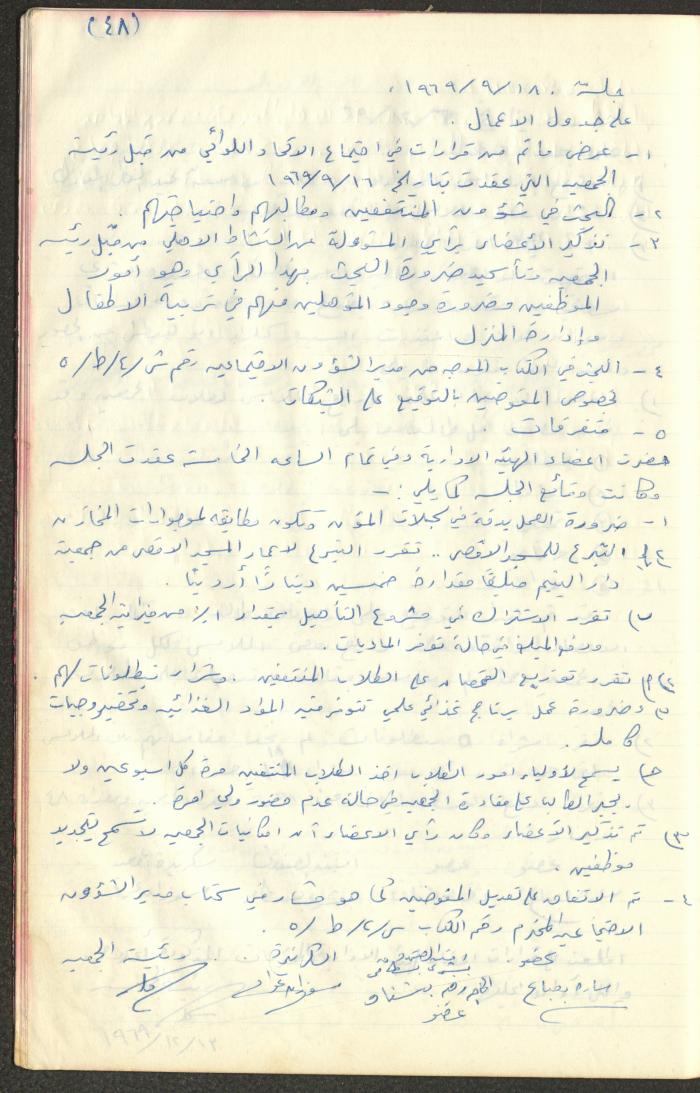 (٤٨)
جلسة ١٨/٩/١٩٦٩
على جدول الاعمال .
١- عرض ما تم من قرارات في اجتماع الاتحاد اللوائي من قبل رئيسة
الجمعية التي عقدت بتاريخ ١٦/٩/١٩٦٩
٢- البحث في شؤون المنتفعين ومطاليبهم واحتياجاتهم .
٣- تذكير الأعضاء برأي المسؤولة عن النشاط الاهلي من قبل رئيسة
الجمعية وتأكيد ضرورة البحث بهذا الرأي وهو أمور
الموظفين وضرورة وجود المؤهلين منهم في تربية الاطفال
وإدارة المنزل
٤- البحث في الكتاب الموجه من مدير الشؤون الاجتماعية رقم ش/٤/ط/٥
بخصوص المفوضين بالتوقيع على الشيكات .
٥- متفرقات .
حضرت اعضاء الهيئة الادارية وفي تمام الساعه الخامسة عقدت الجلسه
وكانت وقائع الجلسه كما يلي :-
١- ضرورة العمل بدقة في سجلات المؤن وتكون مطابقه لموجودات المخازن
٢) التبرع للمسجد الاقصى .. تقرر التبرع لاعمار المسجد الاقصى من جمعية
دار اليتيم مبلغا مقداره خمسين دينارًا أردنيًا .
ب) تقرر الاشتراك في مشروع التأهيل بمقدار ١٪ من ميزانية الجمعيه
ودفع المبلغ في حالة توفر الماديات .
تقرر توزيع القمصان على الطلاب المنتفعين . وشراء بنطلونات لهم .
وضرورة عمل برنامج غذائي علمي تتوفر فيه المواد الغذائيه وتحضير وجبات
كاملة .
ج) يسمح لأولياء امور الطلاب اخذ الطلاب المنتفعين مرة كل اسبوعين ولا
يجبر الطالب على مغادرة الجمعيه في حالة عدم حضور ولي امره
٣) تم تذكير الأعضاء وكان رأي الاعضاء أن امكانيات الجمعيه لا تسمح بتجديد
موظفين .
٤- تم الاتفاق على تعديل المفوضين كما هو مشار في كتاب مدير الشؤون
الاجتماعيه المحترم رقم الكتاب ش/٤/ط/٥ .
بحضور امينة الصندوق السكرتيرة . رئيسة الجمعيه
سارة صباغ
عضو